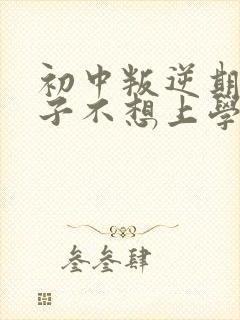 初中叛逆期
子不想上學
叁叁肆